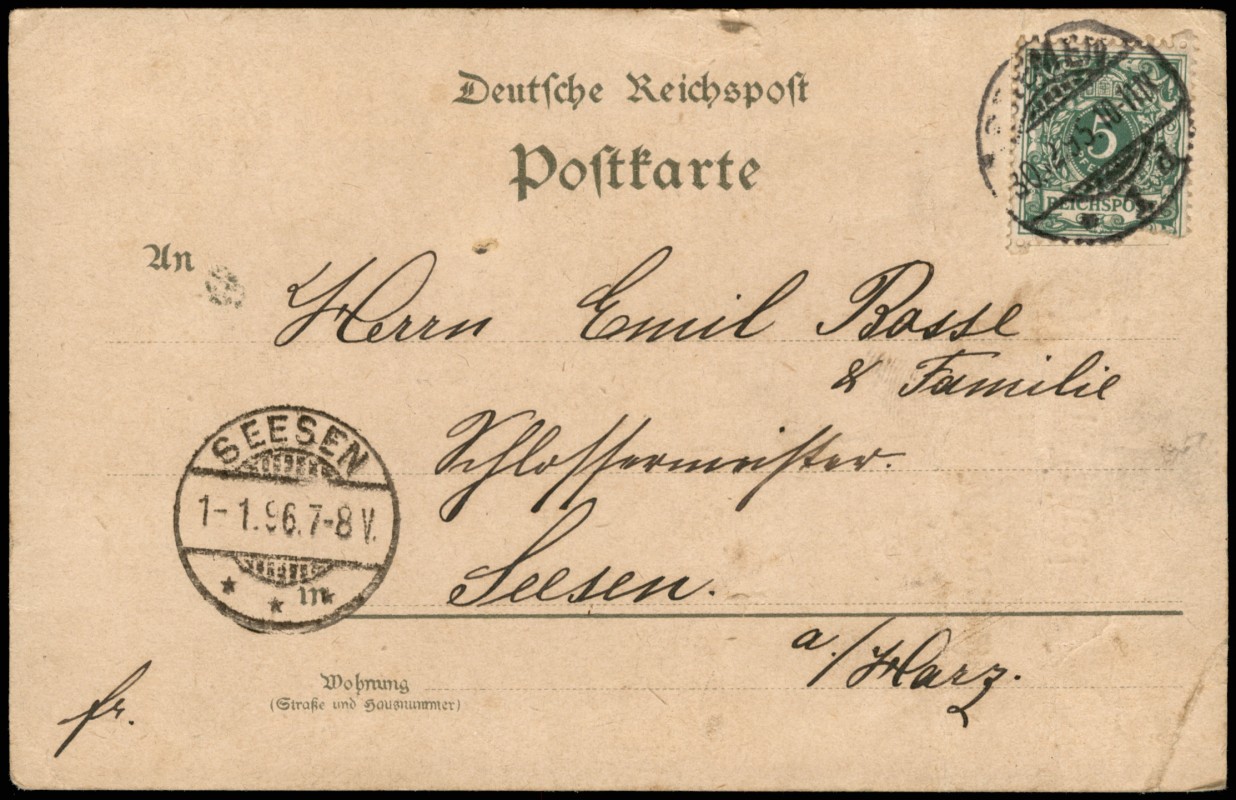 Deutsche Reichspost
Postkarte
5
REICHSPOST
An
Herrn Emil Bosse
& Familie
Schlossermeister.
SEESEN
1-1.96.7-8V.
m
Seesen.
a./Harz.
Wohnung
(Straße und Hausnummer)
fr.